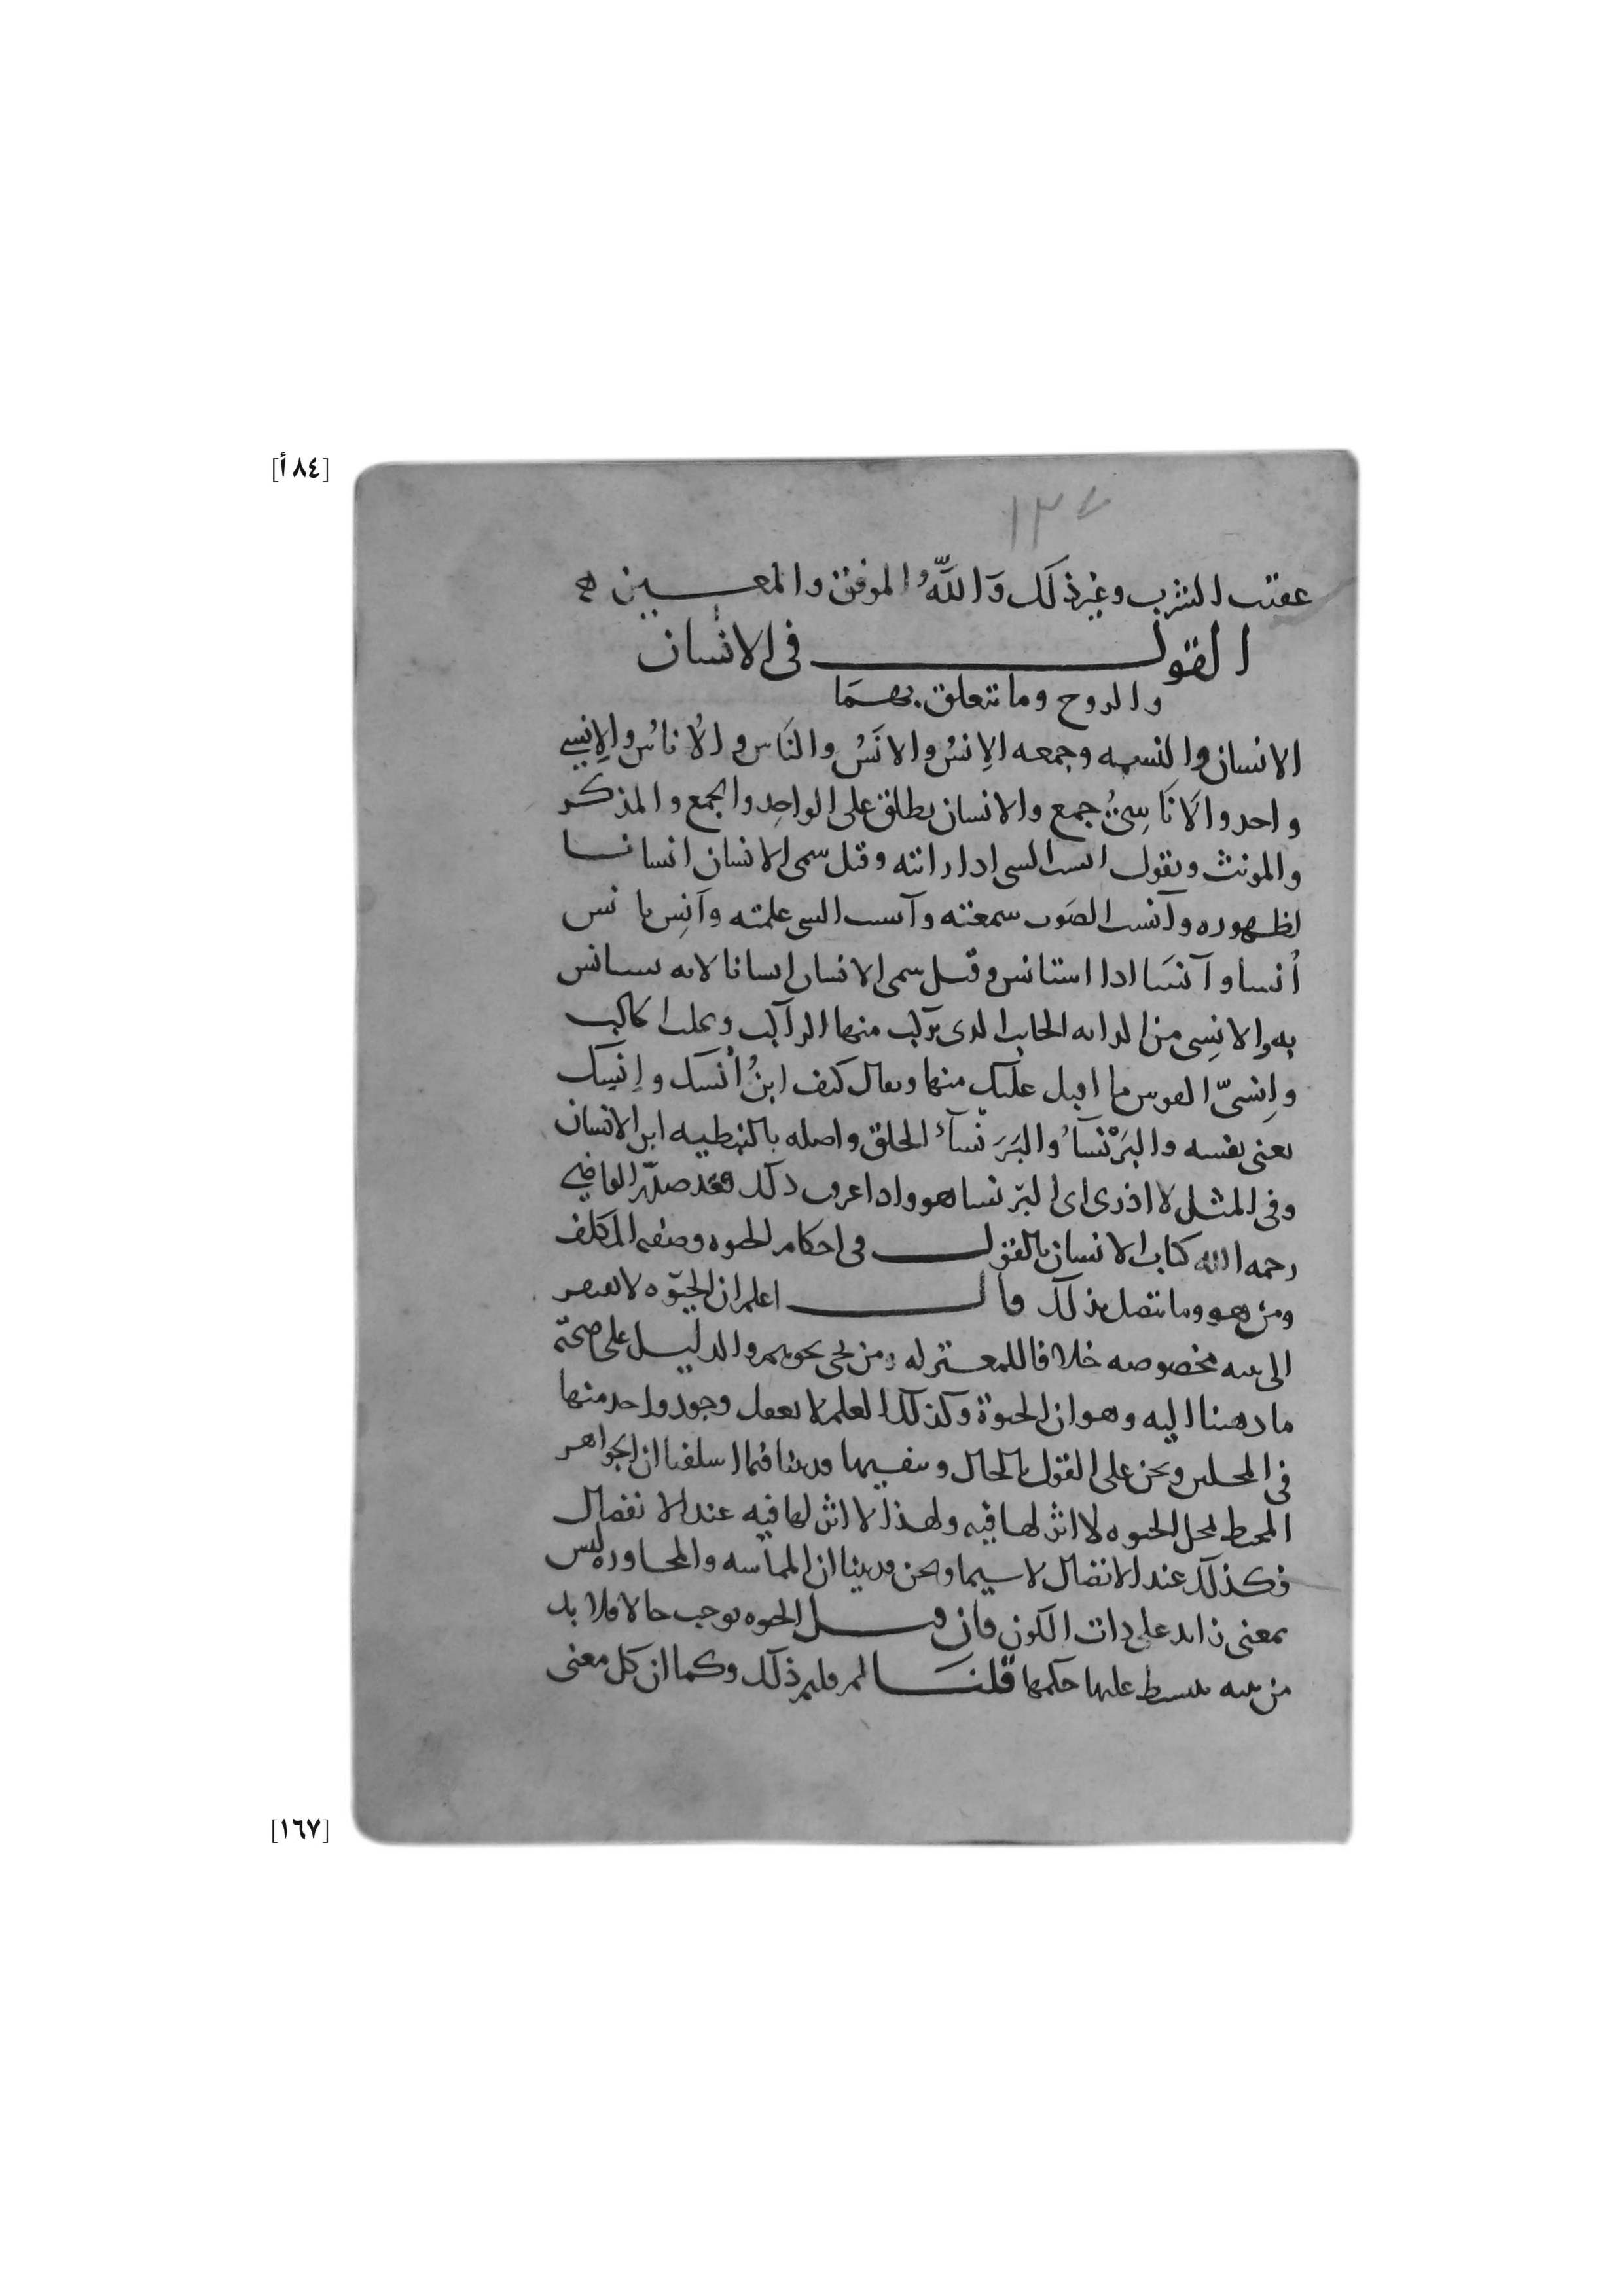 [٨٤أ]
١٣٧
عقيب الشرب وغير ذلك وَاللَّهُ الموفق والمعــين
القولــــ في الانسان
والروح وما تتعلق بهما
الانسان والنسمه وجمعه الإنسُ والانَسُ والنَاس والاُناسُ والإنسِي
واحد والاَنَاسِيُّ جمع والانسان يطلق على الواحِد والجمع والمذكر
والمونث ويقول انست الشي اذا راىته وقيل سمى الانسان انسانا
لظهوره وآنست الصَوت سمعته وآنست الشي علمته وآنِس يانس
أُنسا وآنسَا اذا استانس وقيل سمى الانسان انسانا لانه يستانس
به والانِسى من الدابه الجانب الذى يركب منها الراكب ويحلب الحالب
وإنسىّ القوس ما اقبل عليك منها ويقال كيف ابنُ أُنسك وإنسِك
يعنى نفسه والبَرْنسآُ والبَرَنسآء الخلق واصله بالنبطيه ابن الانسان
وفى المثل لا ادرى اى البرنسا هو واذا عرف ذلك فقد صدّر القاضي
رحمه الله كتاب الانسان بالقولــــ فى احكام الحيوه وصفه المكلف
ومن هو وما يتصل بذلك قالــــ اعلم ان الحيوه لا تفتقر
الى بنيه مخصوصه خلافا للمعتزله ومن نحى نحوهم والدليل على صحة
ما ذهبنا اليه وهو ان الحيوة وكذلك العلم لا يعقل وجود واحد منها
فى المحلين ونحن على القول بالحال ونفيها وبينا فيما اسلفنا ان الجواهر
المحيط بمحل الحيوه لا اثر لها فيه ولهذا لا اثر لها فيه عند الانفصال
فكذلك عند الاتصال لا سيما ونحن وبينا ان المماسه والمجاوره ليس
بمعنى زايد على ذات الكون فان قيــل الحيوه توجب حالا فلا بد
من بنيه ينبسط عليها حكمها قلنَــا لم قلتم ذلك وكما ان كل معنى
[١٦٧]